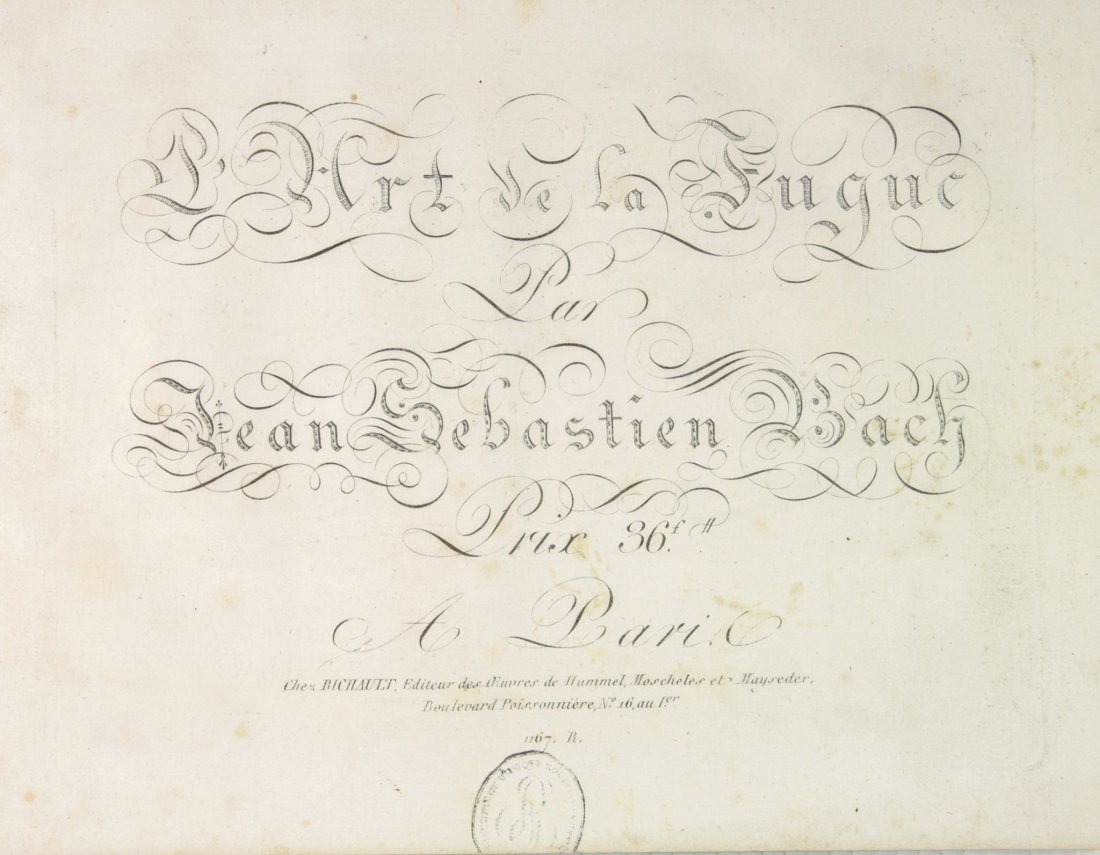 L'Art de la Fugue
Par
Jean Sebastien Bach
Prix 36.f
A Paris
Chez RICHAULT, Editeur des Œuvres de Hummel, Moscheles et Mayseder,
Boulevard Poissonnière, No. 16, au 1er
1167. R.